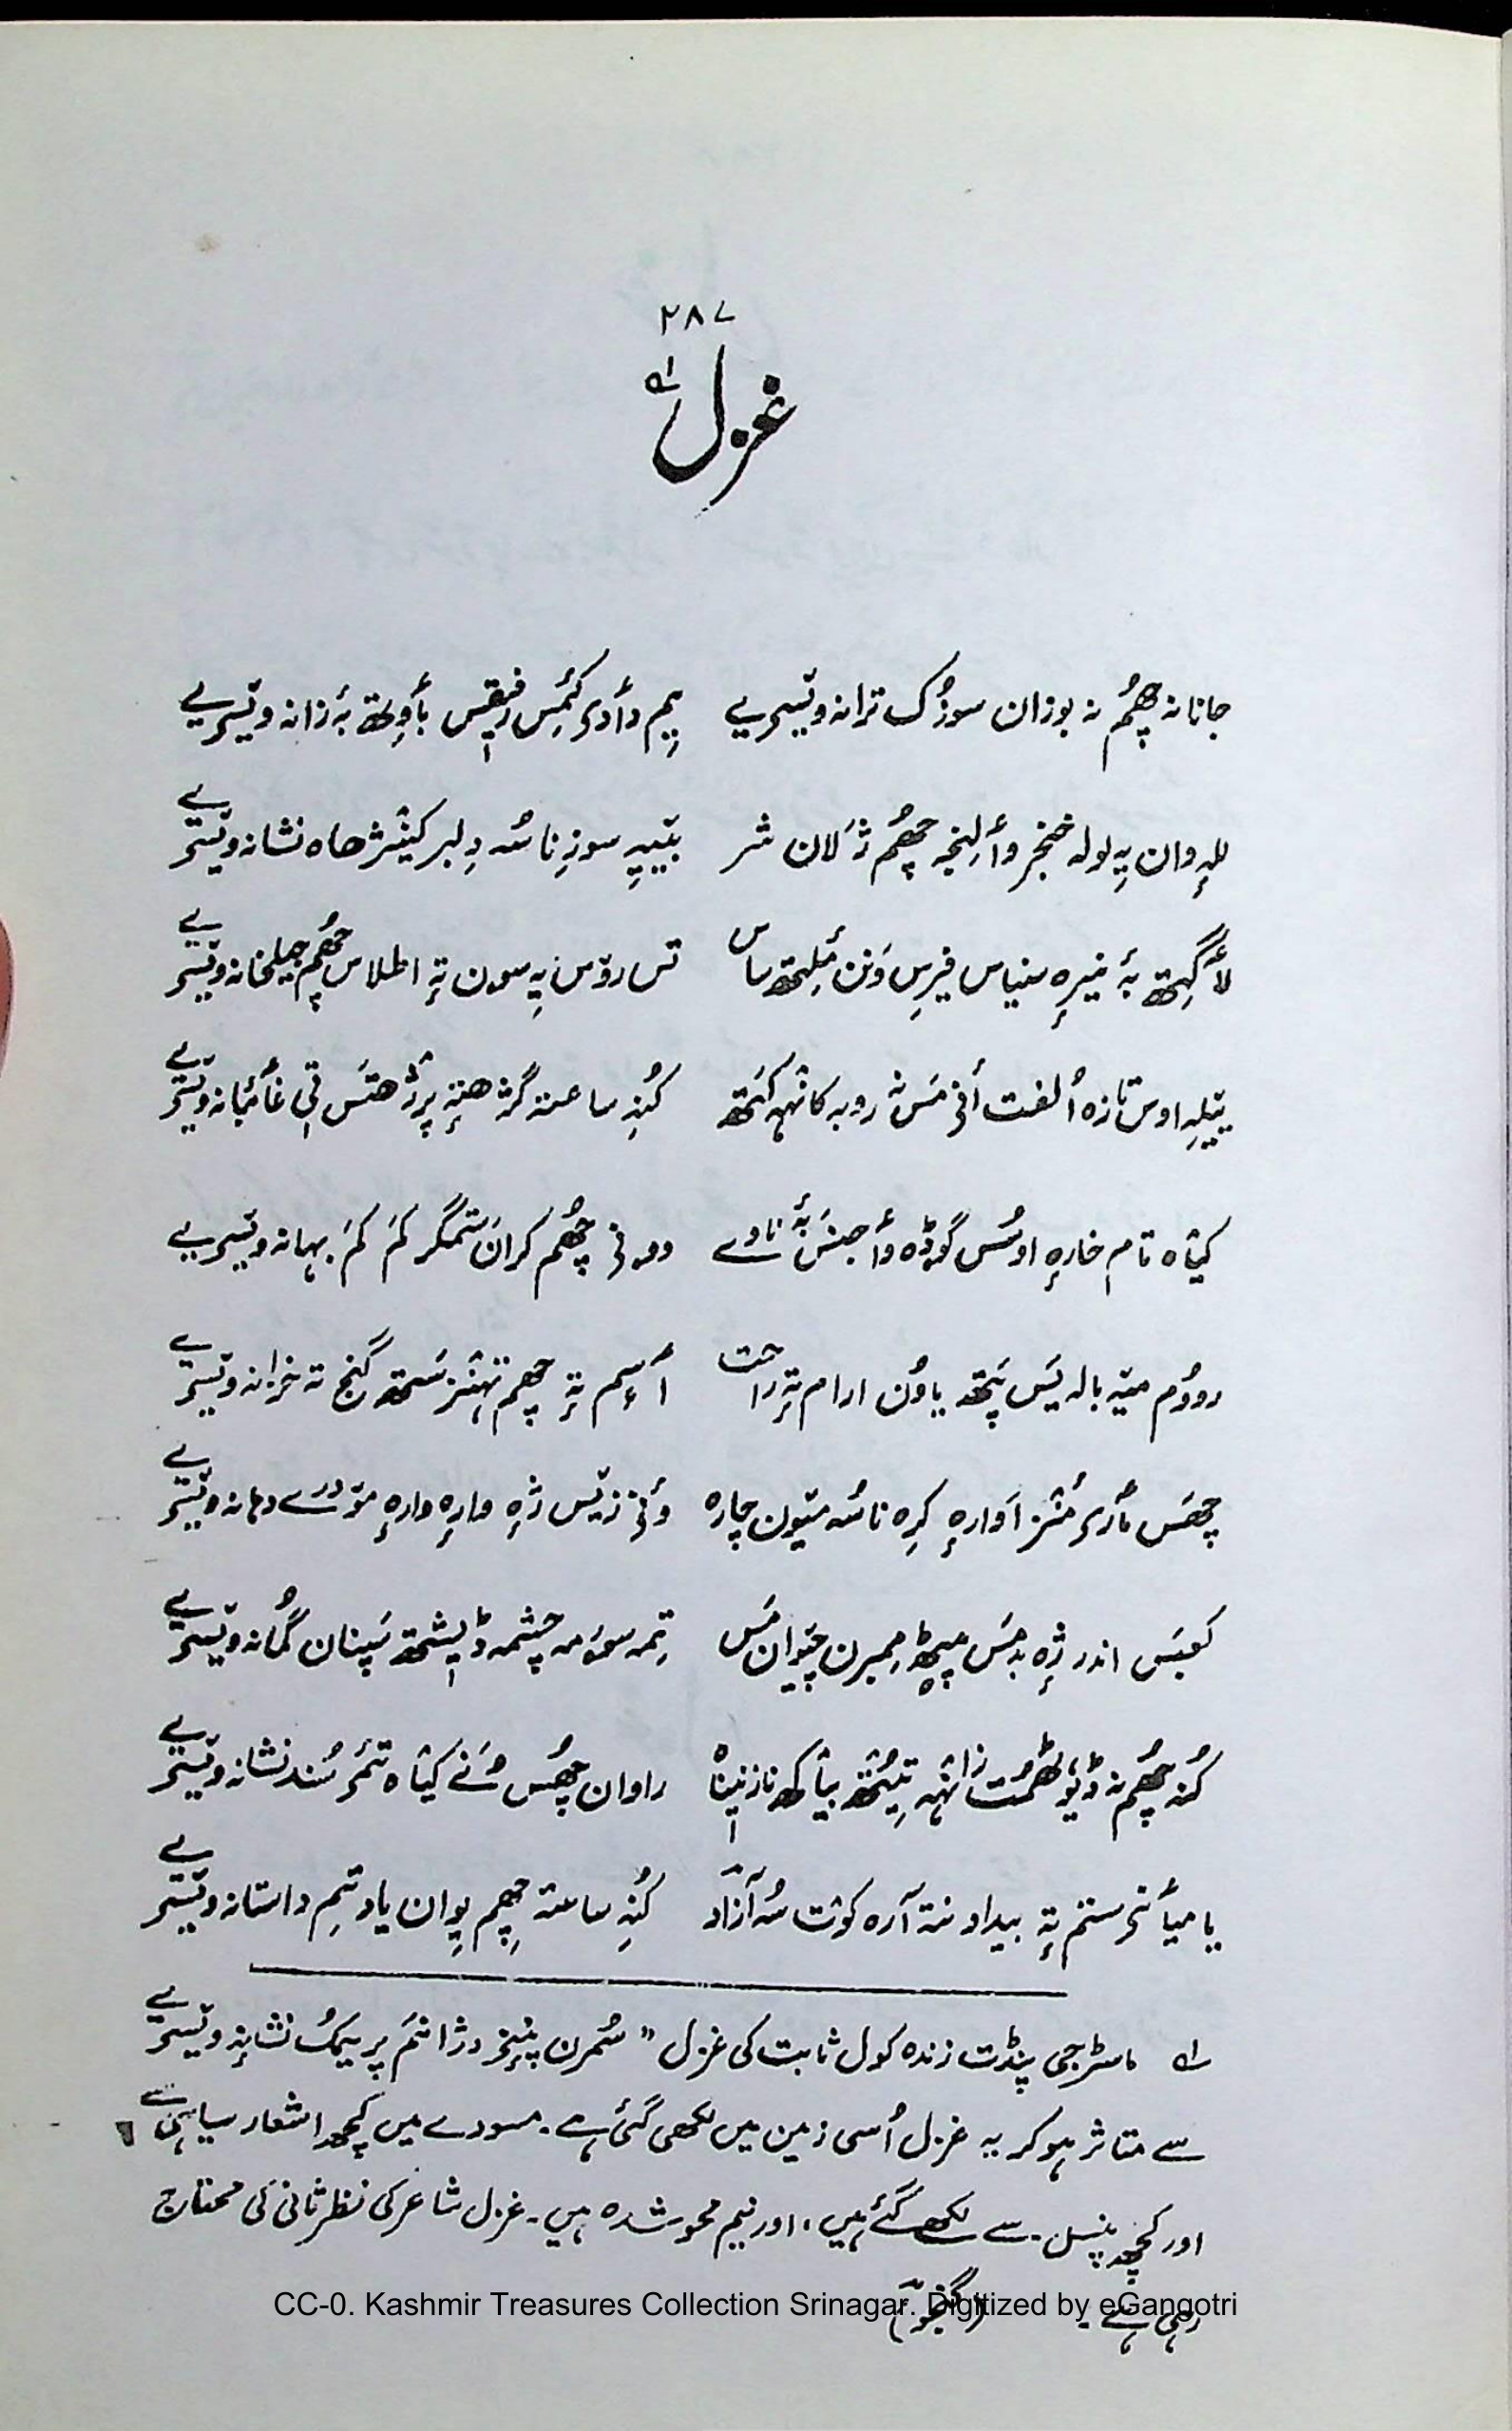 ۲۸۷
غزل ؎۱
جانانہ چھُم نہ بوزان سوزُک ترانہ ویٚسیے یِم دٲدۍ کٔمِس رفیٖقس بٲوِتھ بہٕ زانہ ویٚسیے
للہِ وان یِہ لولہ خنجر وٲلِنجہِ چھُم ژَلان شر یٚتیٖہِ سوزِ ناسُہ دِلبر کینٛژھاہ نشانہ ویٚسیے
لٲگِتھ بہٕ نیرٕہ سنیاس فیرِس وَنن مٔلِتھ ساس تس روٚس یِہ سون تہٕ اطلاس چھُم جیلخانہ ویٚسیے
ییٚلہِ اوس تازہ اُلفت أنۍ مَس نہٕ روبہ کانٛہہ کَتھ کُنہِ ساعتہ گژھنہٕ پرٛژھتَس تٔتی غٲئبانہ ویٚسیے
کیٛاہ تام خارہٕ اوسُس گوڈہ وٲجنَس بہٕ ناوے وونۍ چھُم کران ستمگر کَم کَم بہانہ ویٚسیے
رووُم میٚہ بالہ یَس پَتھ یاوُن ارام تہٕ راحت آسِم تہٕ چھم تہنٛز سَتھ گنج تہ خزانہ ویٚسیے
چھَس مٲرۍ منٛز آوارہٕ کرِہ ناسُہ میٚون چارہ وٲنۍ زیٚس ژہٕ وارہٕ وارہٕ موٚدرے دہانہ ویٚسیے
کعبَس اندر ژہٕ بدمَس میٖٹھ مِمبرن چیٚوان مَس تِمہ سوٗمہ چشمہ ڈیٖشتھ سَپنان گُمانہ ویٚسیے
کُنہِ چھُم نہ ڈیوٗٹھمُت زانٛہہ تیُتھ بیٛاکھ نازنیٖناہ راوان چھُس وَنے کیٛاہ تٔمۍ سُند نشانہ ویٚسیے
یا میٲنۍ ستم تہٕ بیداد نتہ آرہ کوٚت سُہ آزاد کُنہِ ساعتہ چھِم پِوان یاد تِم داستانہ ویٚسیے
؎۱ ماسٹرجی پنڈت زندہ کول ثابت کی غزل ”سُمرن پنٕنۍ دژانَم پریمُک نشانہٕ ویٚسیے
سے متاثر ہوکر یہ غزل اُسی زمین میں لکھی گئی ہے۔ مسودے میں کچھ اشعار سیاہی سے
اور کچھ پنسل سے لکھے گئے ہیں، اور نیم محو شدہ ہیں۔ غزل شاعر کی نظرثانی کی محتاج
رہی ہے۔ (گنجوٗ)
CC-0. Kashmir Treasures Collection Srinagar. Digitized by eGangotri